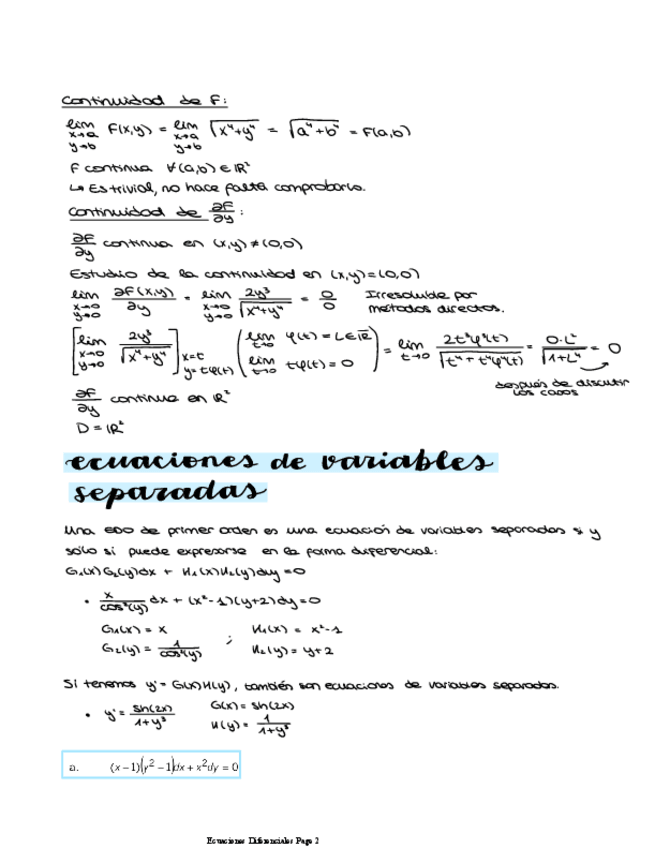 Continuidad de F:
lim x→a y→b F(x,y) = lim x→a y→b √(x⁴+y⁴) = √(a⁴+b⁴) = F(a,b)
F continua ∀(a,b)∈ℝ²
↳ Es trivial, no hace falta comprobarlo.
Continuidad de ∂F/∂y:
∂F/∂y continua en (x,y)≠(0,0)
Estudio de la continuidad en (x,y)=(0,0)
lim x→0 y→0 ∂F(x,y)/∂y = lim x→0 y→0 2y³/√(x⁴+y⁴) = 0/0 Irresoluble por métodos directos.
[lim x→0 y→0 2y³/√(x⁴+y⁴)] x=t y=tφ(t) (lim t→0 φ(t)=L∈ℝ lim t→0 tφ(t)=0) = lim t→0 2t³φ³(t)/√(t⁴+t⁴φ⁴(t)) = 0·L³/√(1+L⁴) = 0
después de discutir los casos
∂F/∂y continua en ℝ²
D=ℝ²
ecuaciones de variables
separadas
Una EDO de primer orden es una ecuación de variables separadas si y
sólo si puede expresarse en la forma diferencial:
G₁(x)G₂(y)dx + H₁(x)H₂(y)dy=0
• x/cos²(y) dx + (x²-1)(y+2)dy=0
G₁(x) = x ; H₁(x) = x²-1
G₂(y) = 1/cos²(y) H₂(y) = y+2
Si tenemos y'= G(x)H(y), también son ecuaciones de variables separadas.
• y'= sh(2x)/1+y³ G(x)= sh(2x)
H(y)= 1/1+y³
a. (x-1)(y²-1)dx+x²dy=0
Ecuaciones Diferenciales Page 2